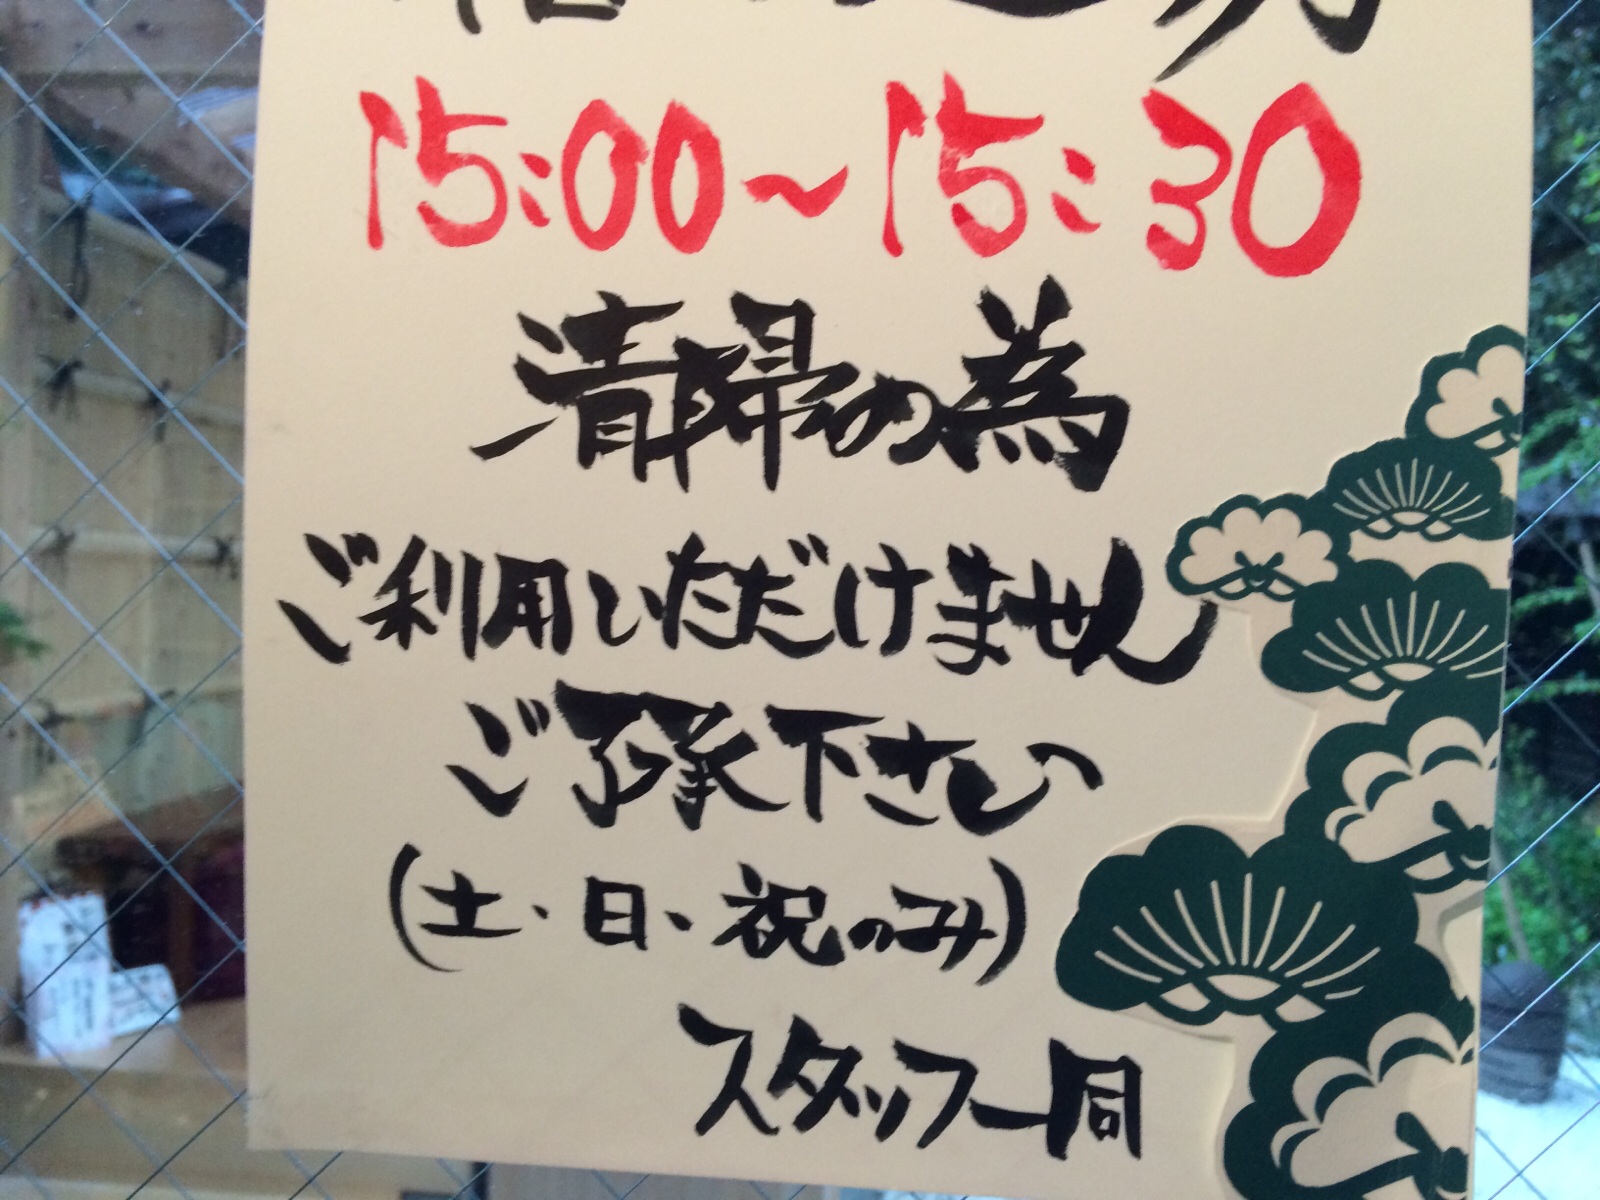 15:00～15:30
清掃の為
ご利用いただけません
ご了承下さい
(土・日・祝のみ)
スタッフ一同